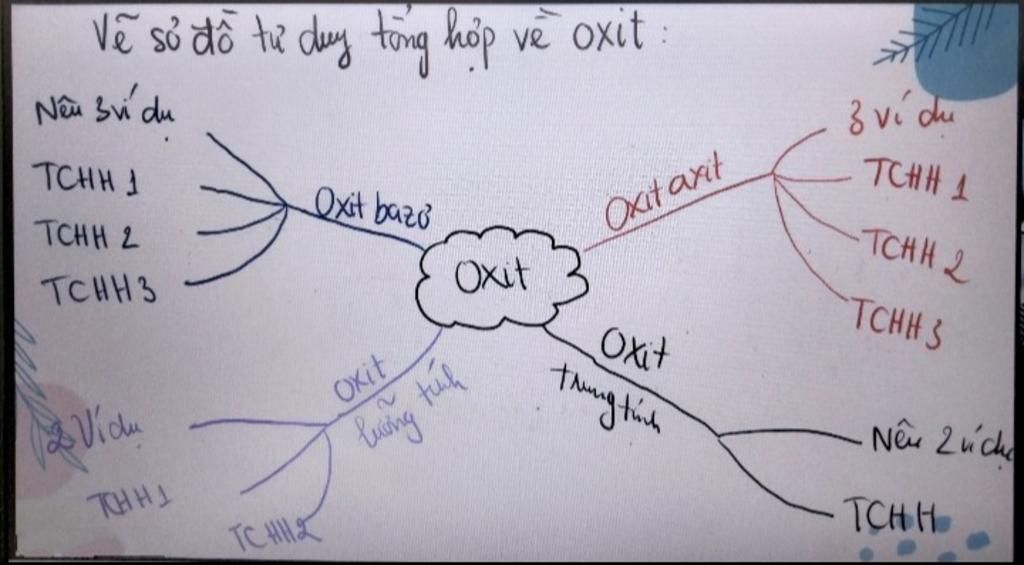 Vẽ sơ đồ tư duy tổng hợp về oxit:
Nêu 3 ví dụ
TCHH 1
TCHH 2
TCHH 3
Oxit bazơ
Oxit axit
3 ví dụ
TCHH 1
TCHH 2
TCHH 3
Oxit
oxit
lưỡng tính
2 Ví dụ
TCHH1
TCHH2
Oxit
trung tính
Nêu 2 ví dụ
TCHH